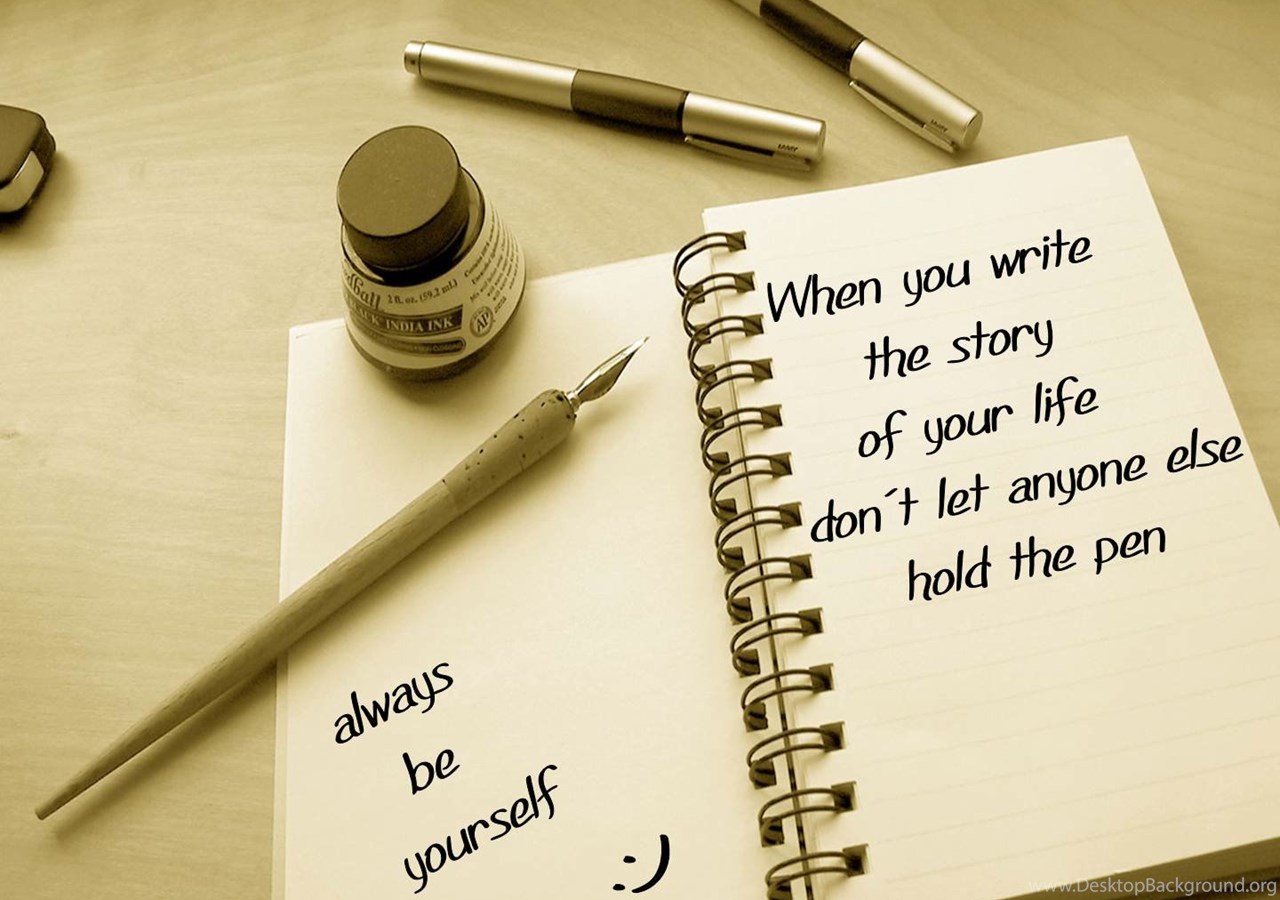 When you write
the story
of your life
don´t let anyone else
hold the pen
always
be
yourself
:-)
2 fl. oz. (59.2 mL)
INDIA INK
AP
www.DesktopBackground.org